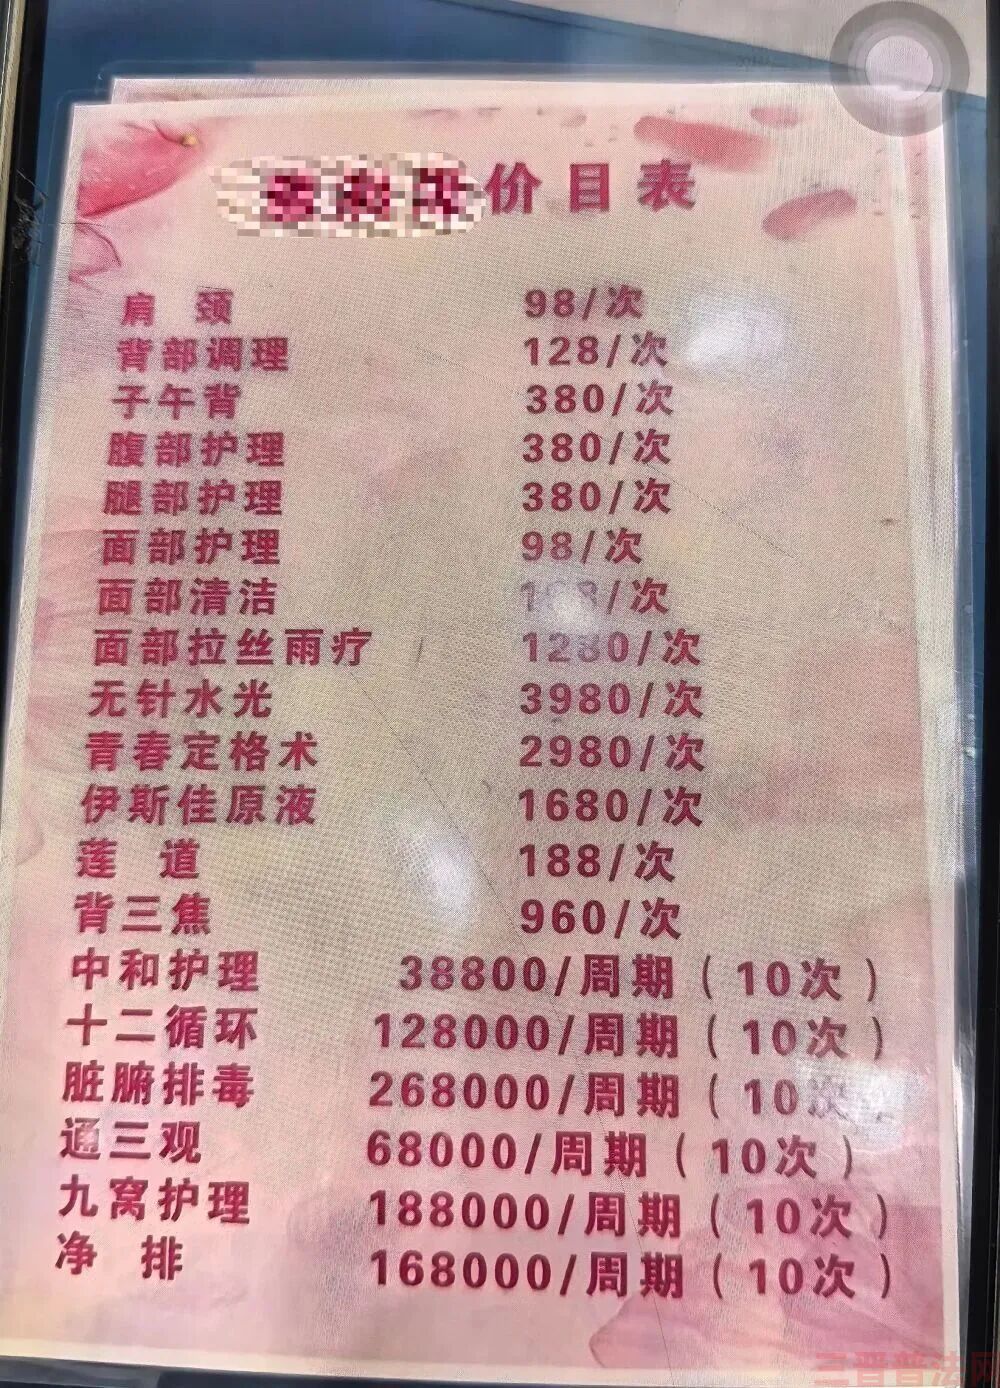 价目表
肩 颈 98/次
背部调理 128/次
子午背 380/次
腹部护理 380/次
腿部护理 380/次
面部护理 98/次
面部清洁 /次
面部拉丝雨疗 1280/次
无针水光 3980/次
青春定格术 2980/次
伊斯佳原液 1680/次
莲 道 188/次
背三焦 960/次
中和护理 38800/周期（10次）
十二循环 128000/周期（10次）
脏腑排毒 268000/周期（10次）
通三观 68000/周期（10次）
九窝护理 188000/周期（10次）
净 排 168000/周期（10次）
三晋普法网